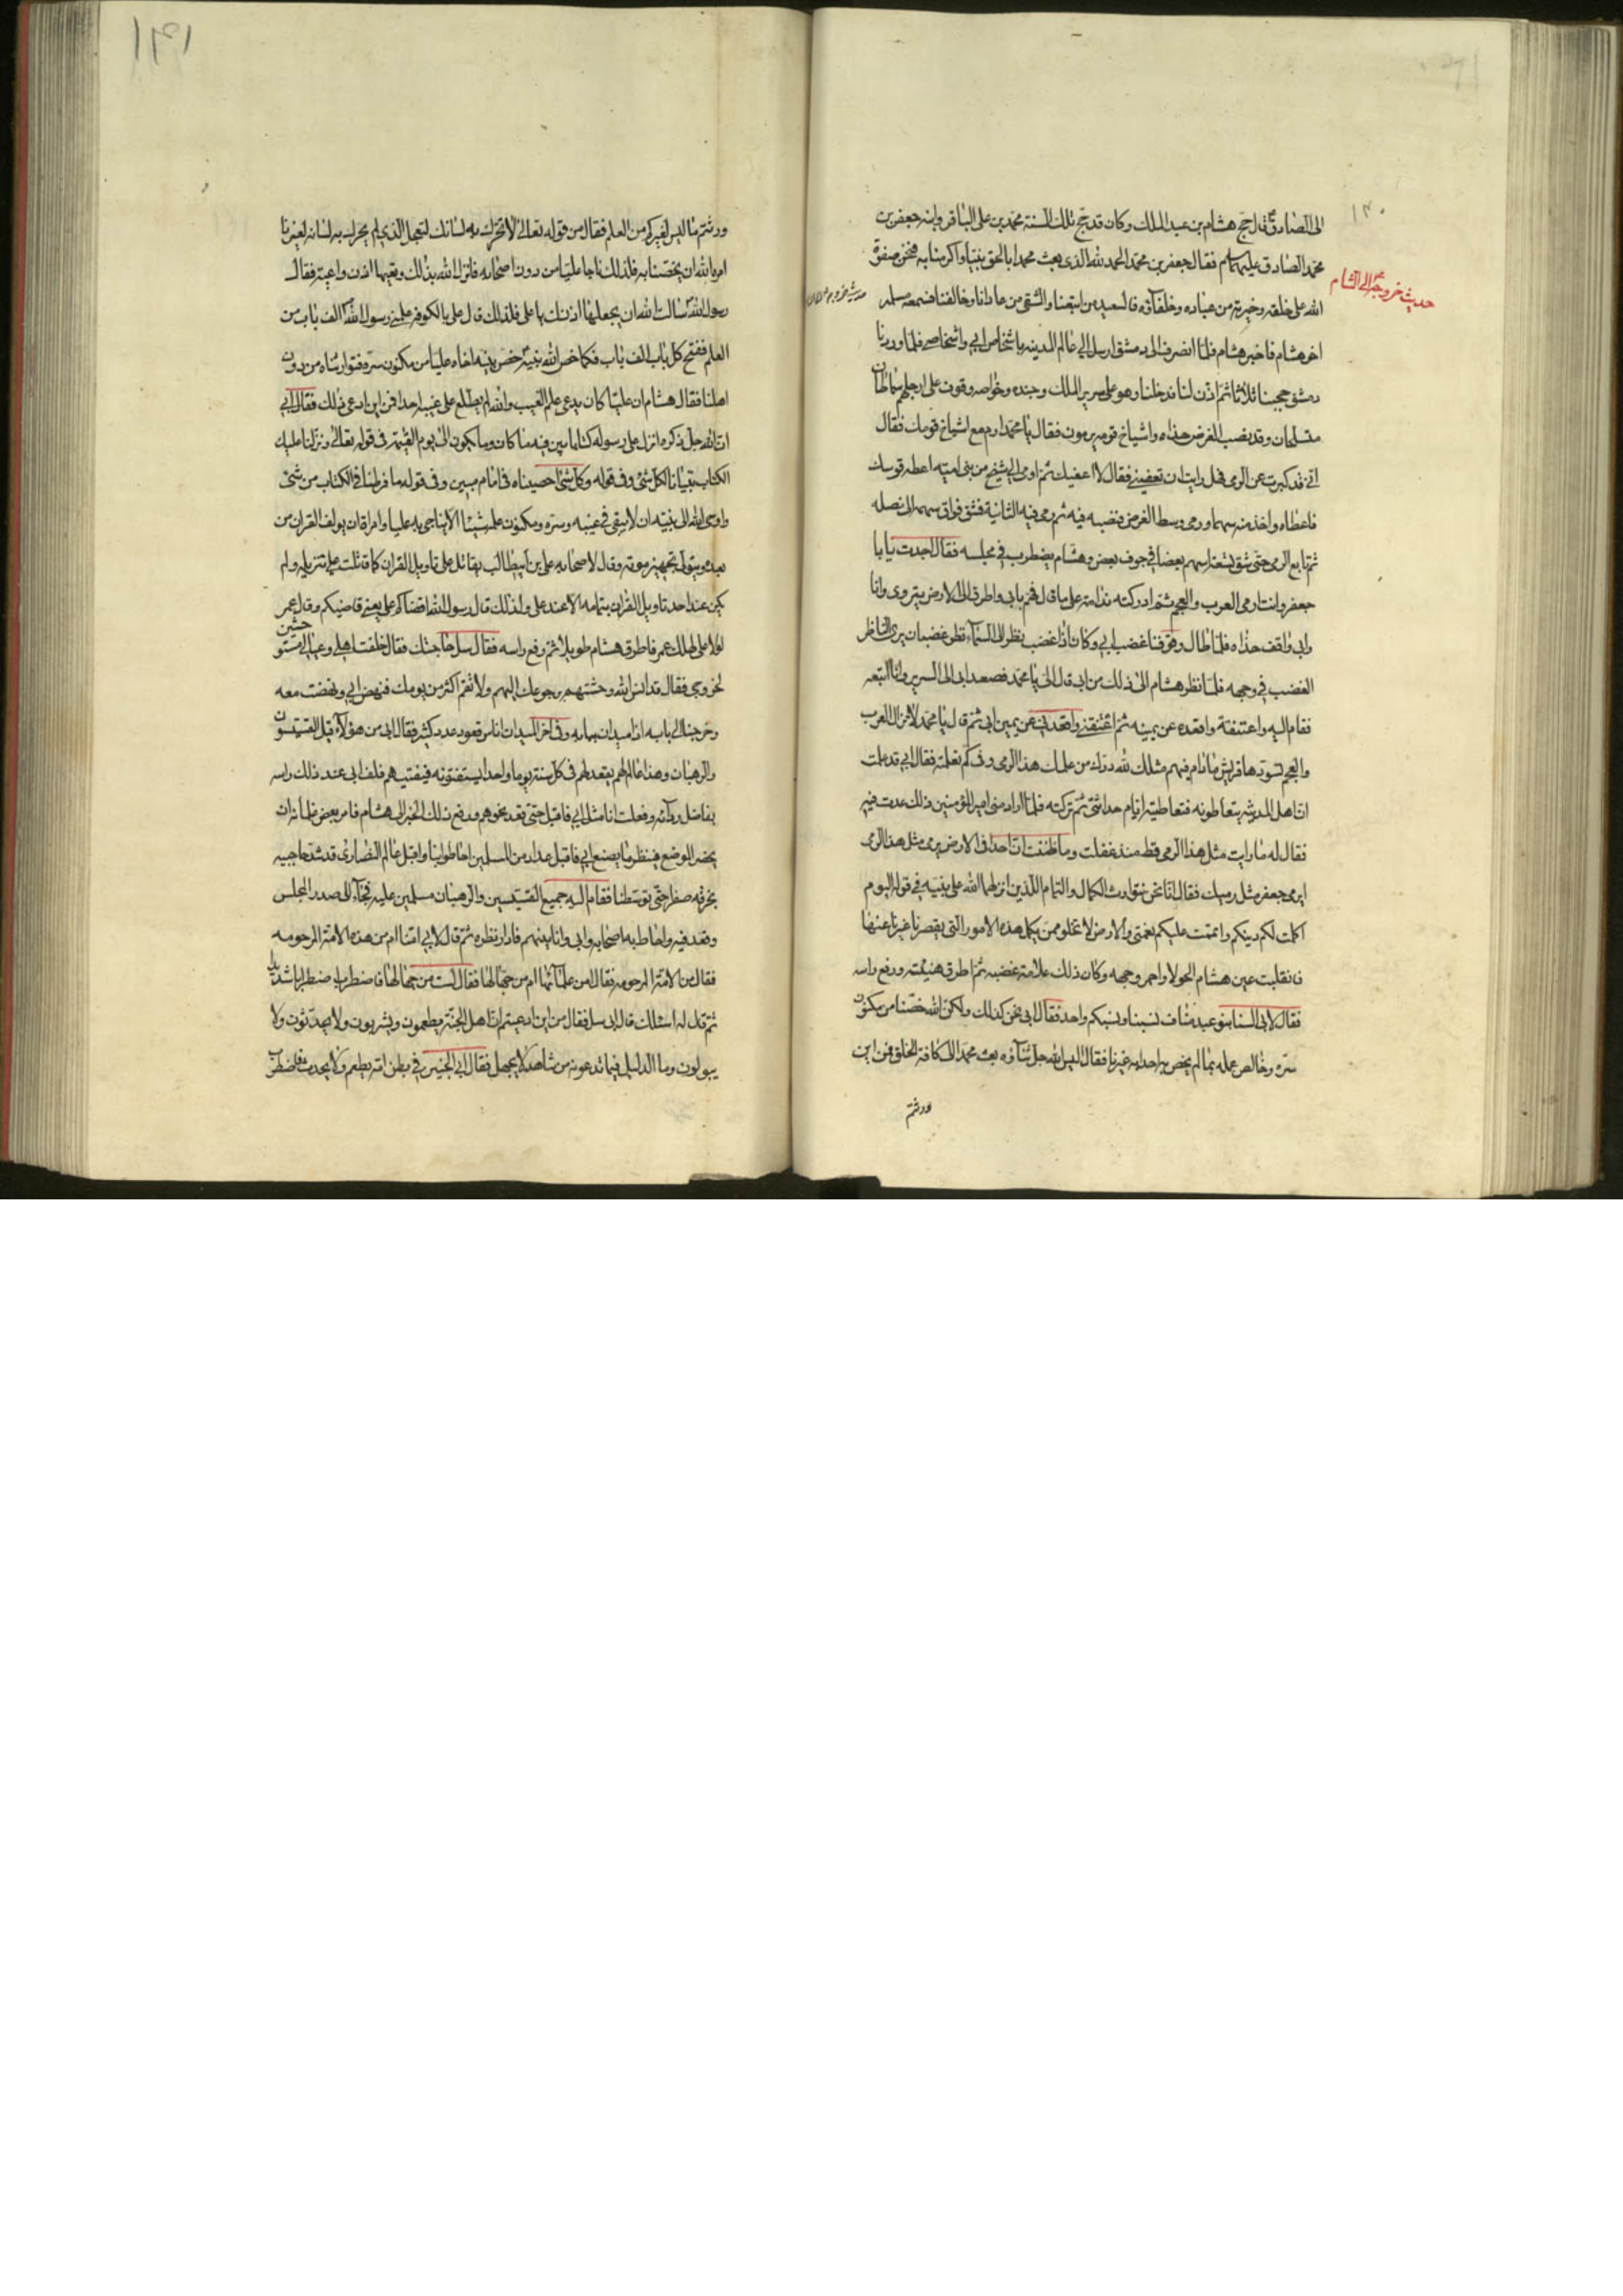 ١٣٠
الى الصادقؑ قال حج هشام بن عبد الملك وكان قد حج تلك السنة محمد بن على الباقر وابنه جعفر بن
محمد الصادق عليهما سلم فقال جعفر بن محمد الحمد لله الذى بعث محمدا بالحق نبيا واكرمنا به فنحن صفوة
الله على خلقه وخيرته من عباده وخلفآؤه فالسعيد من اتبعنا والشقى من عادانا وخالفنا فسمعه مسلمة
حديث خروجهؑ الى الشام
اخو هشام فاخبر هشام فلما انصرف الى دمشق ارسل الى عامل المدينه باشخاص ابى واشخاصى فلما وردنا
دمشق حجبنا ثلاثا ثم اذن لنا فدخلنا وهو على سرير الملك وجنده وخواصه وقوف على ارجلهم سماطان
متسلحان وقد نصب الغرض حذاه واشياخ قومه يرمون فقال يا محمد ارم مع اشياخ قومك فقال
انى قد كبرت عن الرمى فهل رايت ان تعفينى فقال لا اعفيك ثم اومى الى شيخ من بنى اميه اعطه قوسك
فاعطاه واخذ منه سهما ورمى وسط الغرض فنصبه فيه ثم رمى فيه الثانية فشق فواق سهمه الى نصله
ثم تابع الرمى حتى شق تسعة اسهم بعضا فى جوف بعض وهشام يضطرب فى مجلسه فقال اجدت يابا
جعفر وانت ارمى العرب والعجم ثم ادركته ندامة على ما قال فهم بابى واطرق الى الارض يتروى وانا
وابى واقف حذاه فلما طال وقوفنا غضب ابى وكان اذا غضب نظر الى السمآء نظر غضبان يرى الناظر
الغضب فى وجهه فلما نظر هشام الى ذلك من ابى قال الى يا محمد فصعد ابى الى السرير وانا اتبعه
فقام اليه واعتنقة واقعده عن يمينه ثم اعتنقنى واقعدنى عن يمين ابى ثم قال يا محمد لا تزال العرب
والعجم تسودها قريش مادام فيهم مثلك لله درك من علمك هذا الرمى وفى كم تعلمته فقال ابى قد علمت
ان اهل المدينه يتعاطونه فتعاطيته ايام حداثتى ثم تركته فلما اراد منى امير المؤمنين ذلك عدت فيه
فقال له مارايت مثل هذا الرمى قط منذ عقلت وما ظننت ان احدا فى الارض يرمى مثل هذا الرمى
ايرمى جعفر مثل رميك فقال انا نحن نتوارث الكمال والتمام اللذين انزلهما الله على نبيه فى قوله اليوم
اكملت لكم دينكم واتممت عليكم نعمتى والارض لا تخلو ممن يكمل هذه الامور التى يقصر غيرنا عنها
فانقلبت عين هشام الحولا واحمر وجهه وكان ذلك علامة غضبه ثم اطرق هنيئه ورفع راسه
فقال لابى السنا بنو عبد مناف نسبنا ونسبكم واحد فقال ابى نحن كذلك ولكن الله خصنا من مكنون
سره وخالص علمه بما لم يخص به احدا به غيرنا فقال اليس الله جل ثنآؤه بعث محمدا الى كافة الخلق فمن اين
ورثتم
١٣١
ورثتم ما ليس لغيركم من العلم فقال من قوله تعالى لا تحرك به لسانك لتعجل الذى لم يحرك به لسانه لغيرنا
امره الله ان يخصنا به فلذلك ناجا عليا من دون اصحابه فانزل الله بذلك وتعيها اذن واعية فقال
رسول الله سالت الله ان يجعلها اذنك يا على فلذلك قال على بالكوفه علمنى رسول الله الف باب من
العلم ففتح كل باب الف باب فكما خص الله نبيه خص نبيه اخاه عليا من مكنون سره فتوارثناه من دون
اهلنا فقال هشام ان عليا كان يدعى علم الغيب والله لم يطلع على غيبه احدا فمن اين ادعى ذلك فقال ابى
ان الله جل ذكره انزل على رسوله كتابا بين فيه ما كان وما يكون الى يوم القيمة فى قوله تعالى ونزلنا عليك
الكتاب تبيانا لكل شئ وفى قوله وكل شئ احصيناه فى امام مبين وفى قوله ما فرطنا فى الكتاب من شئ
واوحى الله الى نبيه ان لا يبقى فى غيبه وسره ومكنون علمه شيئا الا يناجى به عليا وامره ان يولف القران من
بعده ويتولى تجهيز موته وقال لاصحابه على بن ابيطالب يقاتل على تاويل القران كما قاتلت على تنزيله ولم
يكن عند احد تاويل القران بتمامه الا عند على ولذلك قال رسول الله اقضاكم على يعنى قاضيكم وقال عمر
لولا على لهلك عمر فاطرق هشام طويلا ثم رفع راسه فقال سل حاجتك فقال خلفت اهلى وعيالى مستوحشين
لخروجى فقال قد انس الله وحشتهم برجوعك اليهم ولا تقم اكثر من يومك فنهض ابى ونهضت معه
وخرجنا الى بابه اذا ميدان ببابه وفى آخر الميدان اناس قعود عدد كثير فقال ابى من هؤلآء قيل القسيسون
والرهبان وهذا عالم لهم يقعد لهم فى كل سنة يوما واحدا يستفتونه فيفتيهم فلف ابى عند ذلك راسه
بفاضل ردآئه وفعلت انا مثل ابى فاقبل حتى قعد نحوهم ورفع ذلك الخبر الى هشام فامر بعض غلمانه ان
يحضر الموضع فينظر ما يصنع ابى فاقبل عداد من المسلمين احاطوا بنا واقبل عالم النصارى قد شد حاجبيه
بخرقة صفرا حتى توسطنا فقام اليه جميع القسيسين والرهبان مسلمين عليه فجآء الى صدر المجلس
وقعد فيه واحاط به اصحابه وابى وانا بينهم فادار نظره ثم قال لابى امنا ام من هذه الامة المرحومه
فقال من الامة المرحومه فقال امن علمائها ام من جهالها فقال لست من جهالها فاضطرب اضطرابا شديدا
ثم قال له اسئلك قال ابى سل فقال من اين ادعيتم ان اهل الجنة يطعمون ويشربون ولا يحدثون ولا
يبولون وما الدليل فيما تدعونه من شاهد لا يجهل فقال ابى الجنين فى بطن امه يطعم ولا يحدث فاضطرب